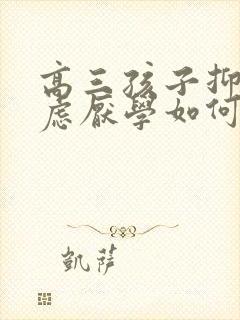 高三孩子抑
虑厌学如何
凯萨